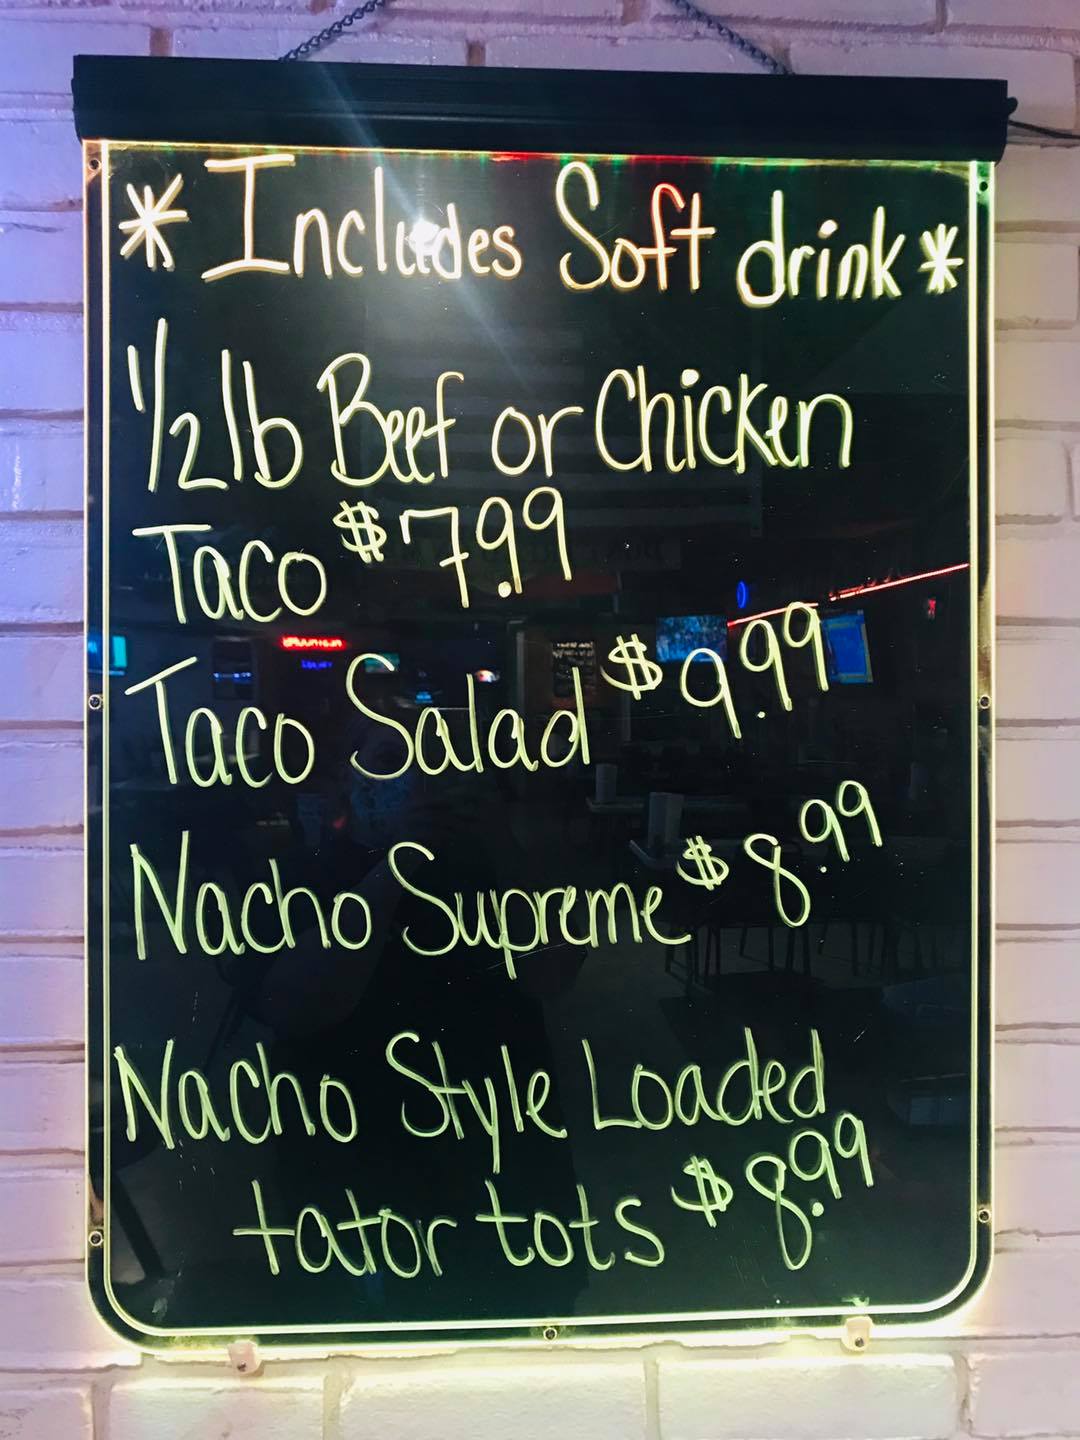 * Includes Soft drink *
1/2 lb Beef or Chicken
Taco $7.99
Taco Salad $9.99
Nacho Supreme $8.99
Nacho Style Loaded
tator tots $8.99